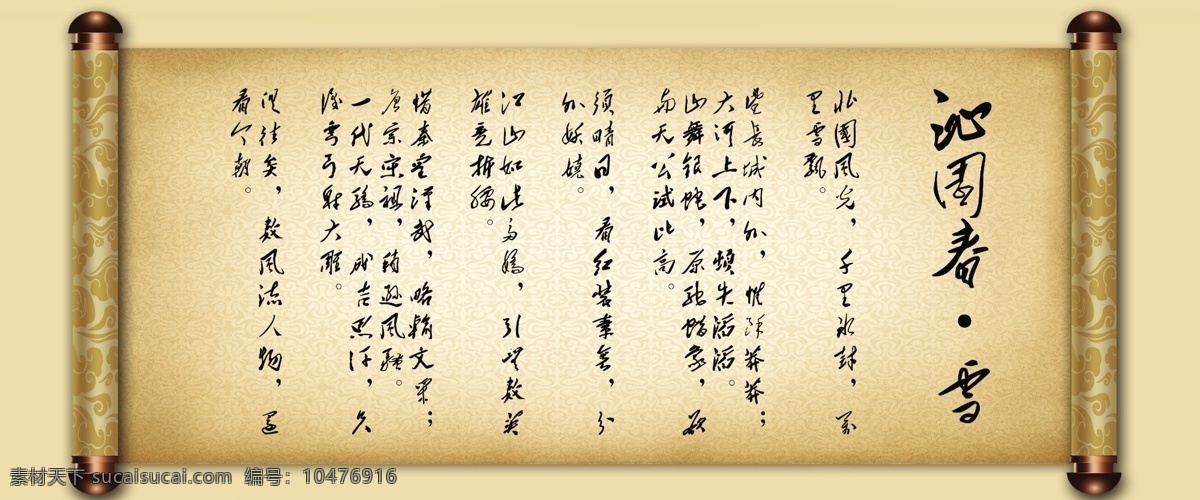 沁園春·雪
北國风光，千里冰封，万
里雪飘。
望長城内外，惟馀莽莽；
大河上下，顿失滔滔。
山舞银蛇，原驰蜡象，欲
与天公试比高。
须晴日，看红装素裹，分
外妖娆。
江山如此多娇，引无数英
雄竞折腰。
惜秦皇汉武，略输文采；
唐宗宋祖，稍逊风骚。
一代天骄，成吉思汗，只
识弯弓射大雕。
俱往矣，数风流人物，还
看今朝。
素材天下 sucaisucai.com 编号：10476916